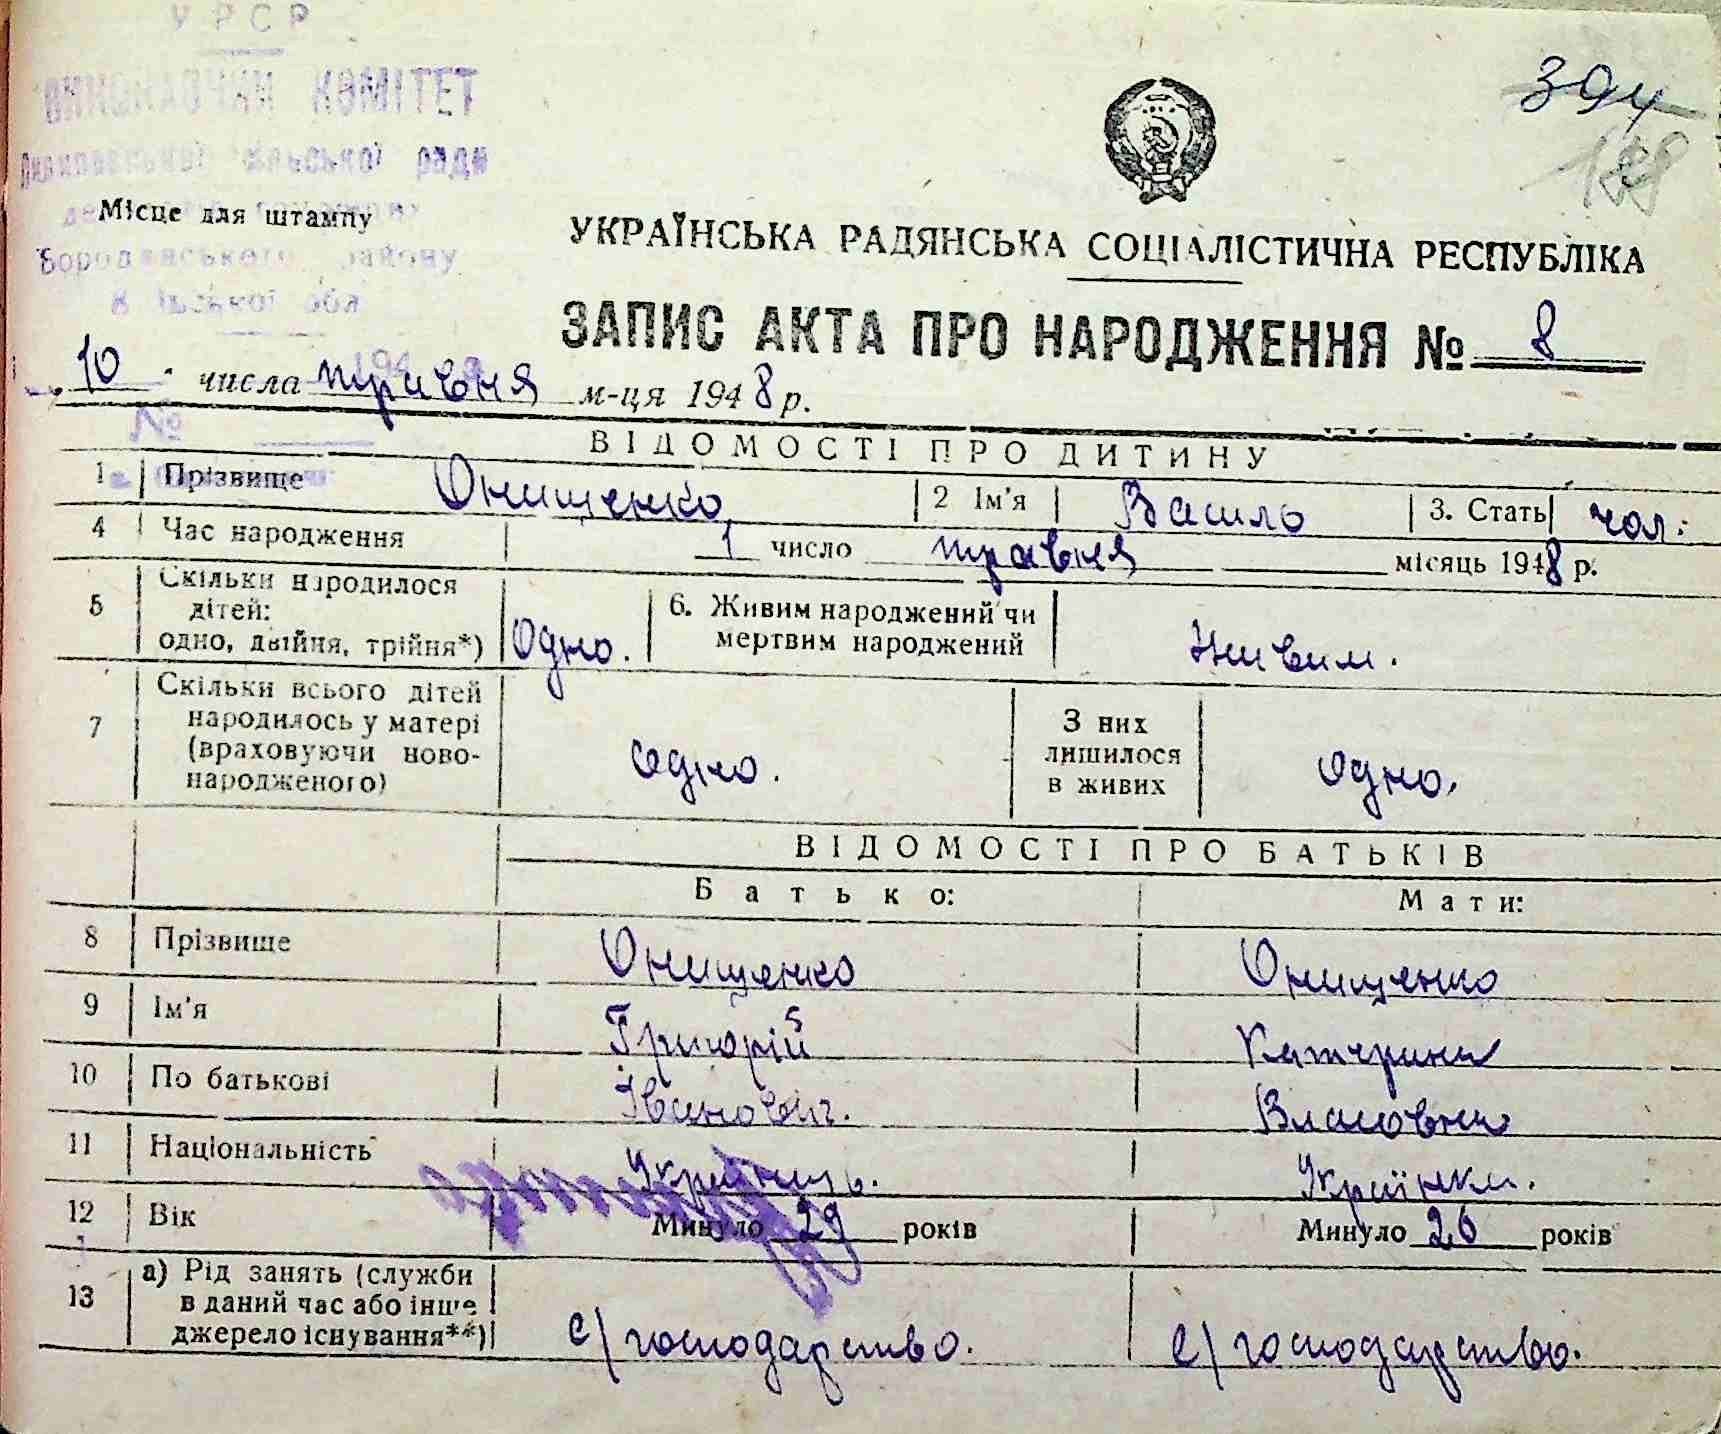 УРСР
ВИКОНАВЧИЙ КОМІТЕТ
сільської ради
Місце для штампу
Бородянського району
Київської обл
394
УКРАЇНСЬКА РАДЯНСЬКА СОЦІАЛІСТИЧНА РЕСПУБЛІКА
ЗАПИС АКТА ПРО НАРОДЖЕННЯ № 8
10 числа травня м-ця 1948 р.
№
ВІДОМОСТІ ПРО ДИТИНУ
1 Прізвище Онищенко 2 Ім'я Василь 3. Стать чол.
4 Час народження 1 число травня місяць 1948 р.
5 Скільки народилося дітей: одно, двійня, трійня*) Одно. 6. Живим народжений чи мертвим народжений Живим.
7 Скільки всього дітей народилось у матері (враховуючи новонародженого) одно. З них лишилося в живих одно.
ВІДОМОСТІ ПРО БАТЬКІВ
Батько: Мати:
8 Прізвище Онищенко Онищенко
9 Ім'я Григорій Катерина
10 По батькові Іванович. Власовна
11 Національність Українець. Українка.
12 Вік Минуло 29 років Минуло 26 років
13 а) Рід занять (служби в даний час або інше джерело існування**) с/господарство. с/господарство.